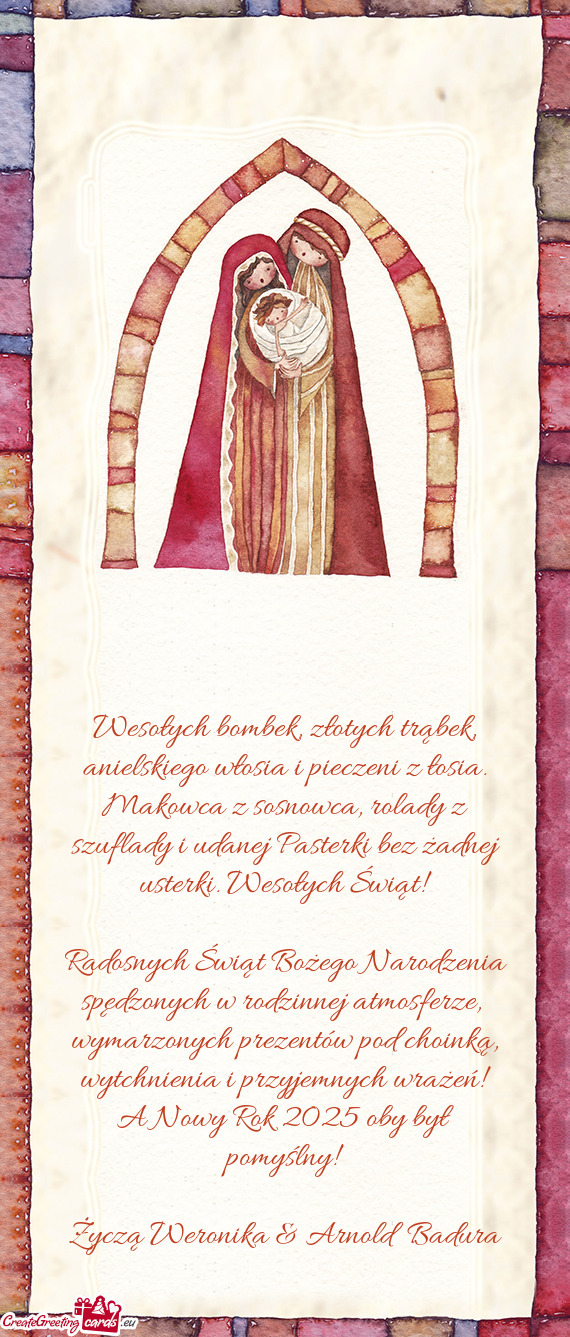 Wesołych bombek, złotych trąbek,
anielskiego włosia i pieczeni z łosia.
Makowca z sosnowca, rolady z
szuflady i udanej Pasterki bez żadnej
usterki. Wesołych Świąt!
Radosnych Świąt Bożego Narodzenia
spędzonych w rodzinnej atmosferze,
wymarzonych prezentów pod choinką,
wytchnienia i przyjemnych wrażeń!
A Nowy Rok 2025 oby był
pomyślny!
Życzą Weronika & Arnold Badura
CreateGreeting cards .eu